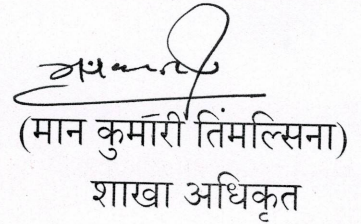 (मान कुमारी तिमल्सिना)
शाखा अधिकृत